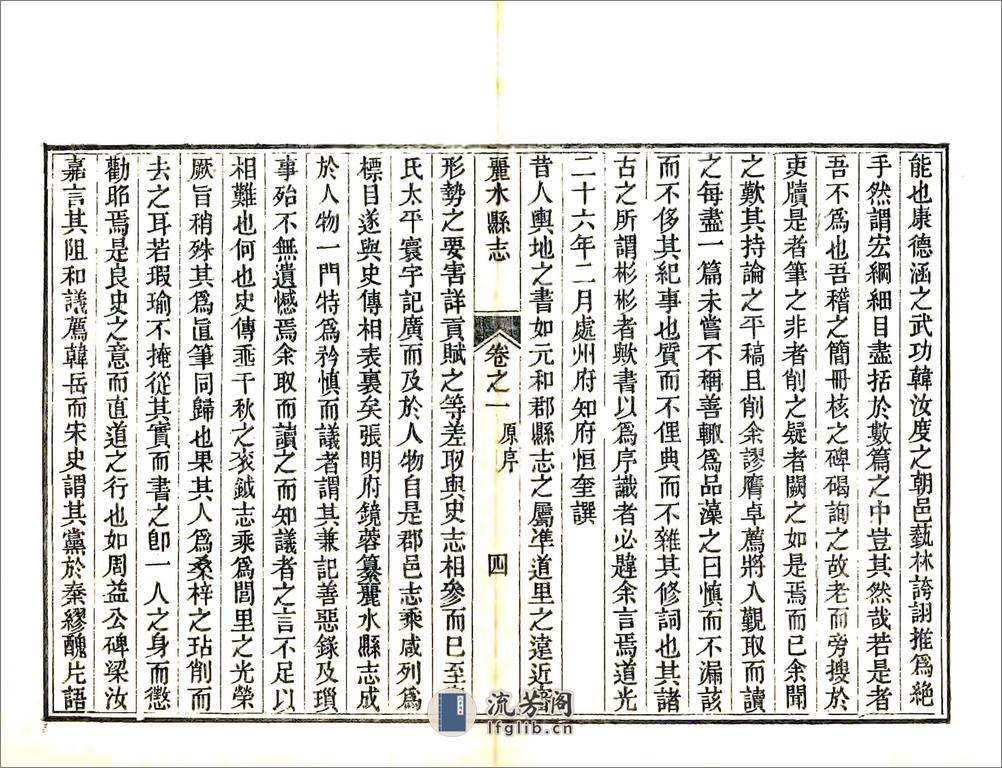 能也康德涵之武功韓汝度之朝邑藝林誇詡推爲絕
手然謂宏綱細目盡括於數篇之中豈其然哉若是者
吾不爲也吾稽之簡冊核之碑碣詢之故老而旁搜於
吏牘是者筆之非者削之疑者闕之如是焉而已余聞
之歎其持論之平稿且削余謬膺卓薦將入覲取而讀
之每盡一篇未嘗不稱善輒爲品藻之曰慎而不漏該
而不侈其紀事也質而不俚典而不雜其修詞也其諸
古之所謂彬彬者歟書以爲序識者必韙余言焉道光
二十六年二月處州府知府恒奎譔
昔人輿地之書如元和郡縣志之屬凖道里之遠近
麗水縣志
卷之一
原序
四
形勢之要害詳貢賦之等差取與史志相參而已至
氏太平寰宇記廣而及於人物自是郡邑志乘咸列爲
標目遂與史傳相表裏矣張明府鏡蓉纂麗水縣志成
於人物一門特爲矜慎而議者謂其兼記善惡錄及瑣
事殆不無遺憾焉余取而讀之而知議者之言不足以
相難也何也史傳垂千秋之衮鉞志乘爲閭里之光榮
厥旨稍殊其爲直筆同歸也果其人爲桑梓之玷削而
去之耳若瑕瑜不掩從其實而書之卽一人之身而懲
勸昭焉是良史之意而直道之行也如周益公碑梁汝
嘉言其阻和議薦韓岳而宋史謂其黨於秦繆醜片語
流芳阁
lfglib.cn